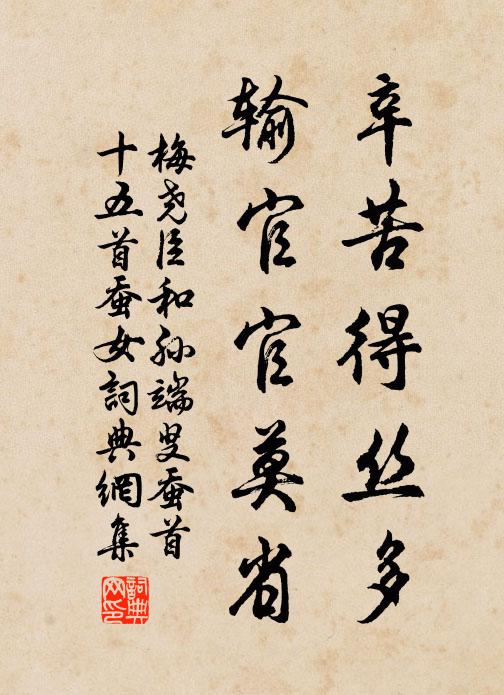 辛苦得丝多
输官官莫省
梅尧臣和孙端叟蚕首
十五首蚕女词典網集
詞典網印